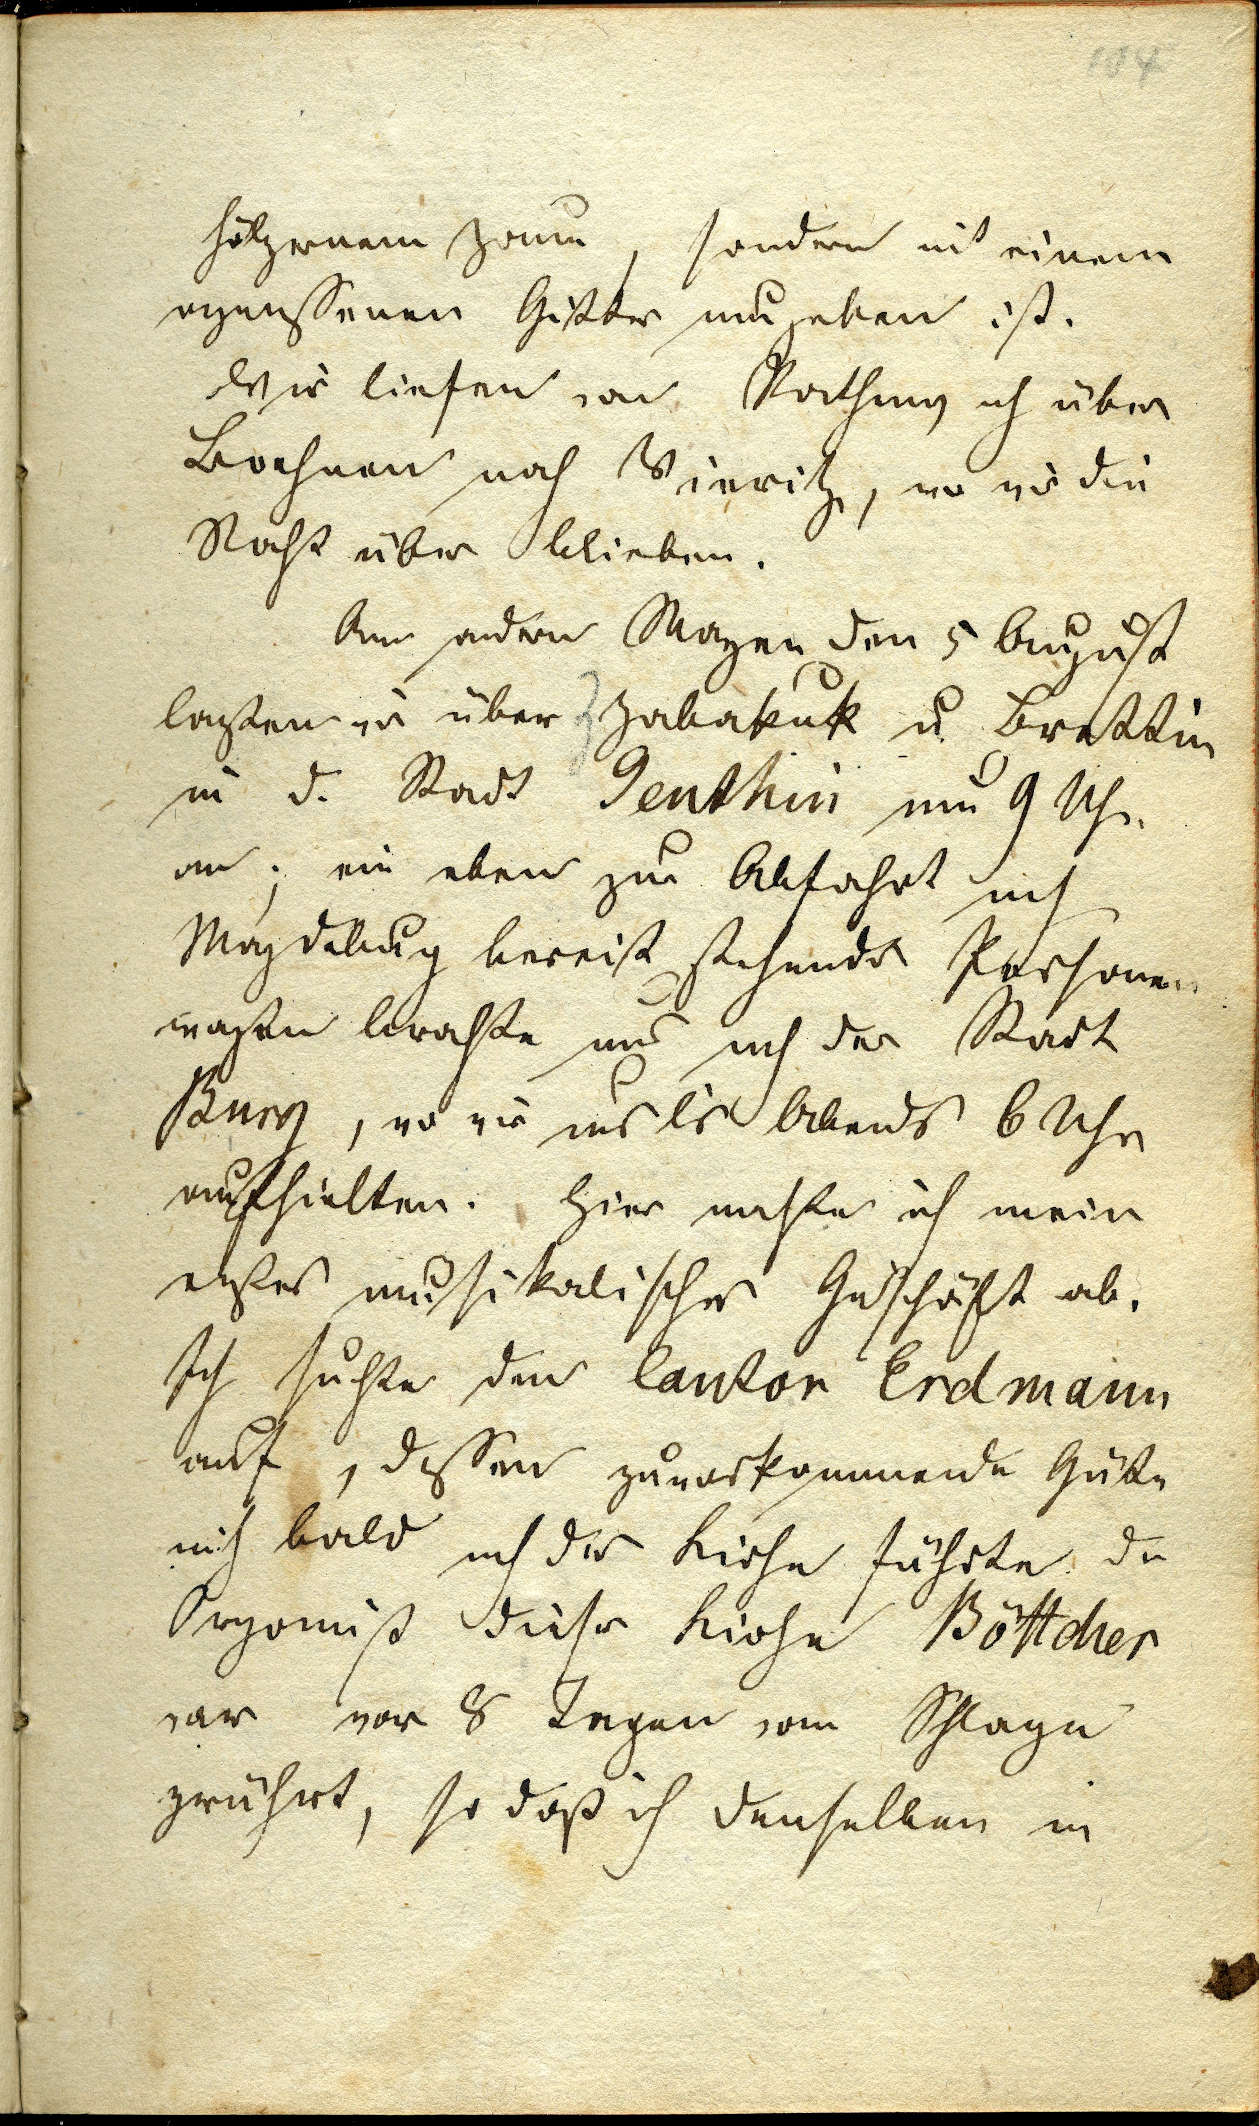 104
hölzernem Zaun, sondern mit einem
eigenssernen Gitter umgeben ist.
Wir liefen von Rathenow ich über
Boehnen nach Vieritz, wo wir die
Nacht über blieben.
Am andern Morgen den 5 August
langten wir über Zabakuk u. Brettin
in d. Stadt Genthin um 9 Uhr
an; ein eben zur Abfahrt nach
Magdeburg bereit stehender Personen
wagen brachte uns nach der Stadt
Burg, wo wir uns bis Abends 6 Uhr
aufhielten. Hier machte ich mein
erstes musikalisches Geschäft ab.
Ich suchte den Cantor Erdmann
auf, dessen zuvorkommende Güte
mich bald nach der Kirche führte. der
Organist dieser Kirche Böttcher
war vor 8 Tagen vom Schlage
gerührt, so daß ich denselben in